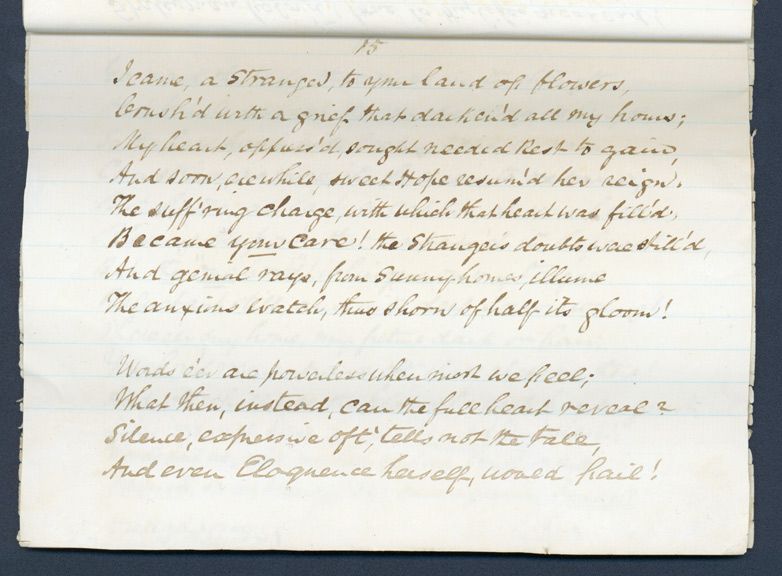 15
I came, a Stranger, to your land of flowers,
Crush'd with a grief that darken'd all my hours;
My heart, oppress'd, sought needed Rest to gain,
And soon, erewhile, sweet Hope resum'd her reign.
The suff'ring charge, with which that heart was fill'd,
Became your care! the Stranger's doubts were still'd,
And genial rays, from Sunny homes, illume
The anxious watch, thus shorn of half its gloom!
Words e'er are powerless when most we feel;
What then, instead, can the full heart reveal?
Silence, expressive oft', tells not the tale,
And even Eloquence herself, would fail!